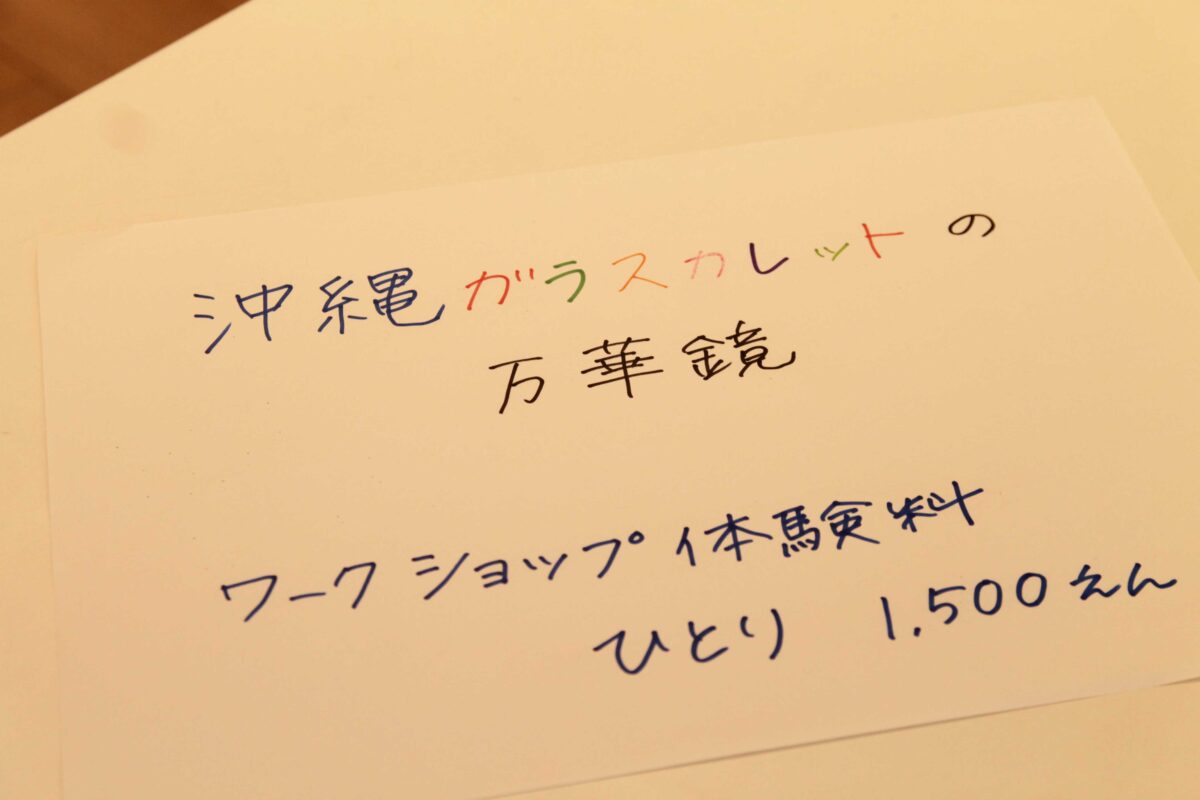 沖縄ガラスカレットの
万華鏡
ワークショップ体験料
ひとり 1,500えん